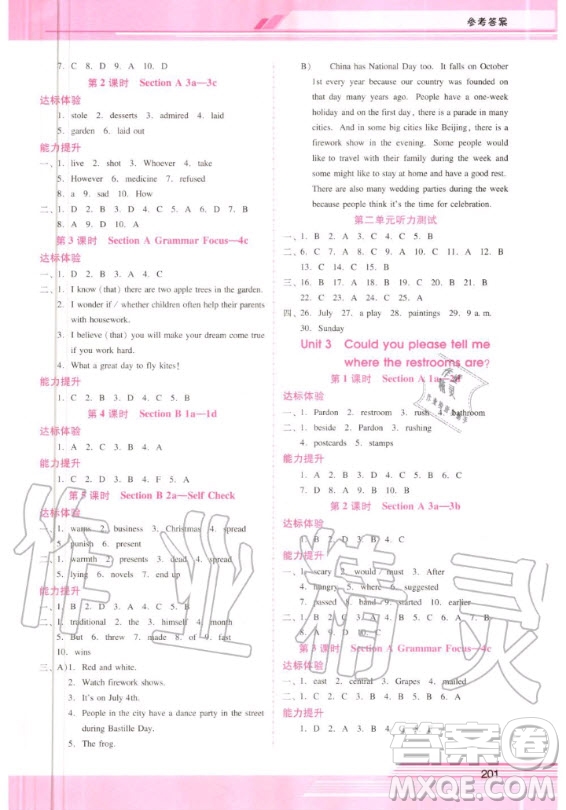 参考答案
7. C 8. D 9. A 10. D
第 2 课时 Section A 3a—3c
达标体验
1. stole 2. desserts 3. admired 4. laid
5. garden 6. laid out
能力提升
一、1. live 2. shot 3. Whoever 4. take
5. However 6. medicine 7. refused
8. a 9. sad 10. How
二、1. D 2. B 3. C 4. A 5. D 6. B 7. B
8. A 9. D 10. C
第 3 课时 Section A Grammar Focus—4c
达标体验
一、1. D 2. D 3. B 4. A 5. C
二、1. I know (that) there are two apple trees in the garden.
2. I wonder if / whether children often help their parents
with housework.
3. I believe (that) you will make your dream come true
if you work hard.
4. What a great day to fly kites!
能力提升
1. C 2. B 3. D 4. B 5. C 6. A
第 4 课时 Section B 1a—1d
达标体验
1. A 2. C 3. B 4. A
能力提升
1. C 2. D 3. B 4. F 5. A
第 5 课时 Section B 2a—Self Check
达标体验
一、1. warns 2. business 3. Christmas 4. spread
5. punish 6. present
二、1. warmth 2. presents 3. dead 4. spread
5. lying 6. novels 7. end up
能力提升
一、1. B 2. D 3. A 4. C 5. B
二、1. traditional 2. the 3. himself 4. month
5. But 6. threw 7. made 8. of 9. fast
10. wins
三、A) 1. Red and white.
2. Watch firework shows.
3. It's on July 4th.
4. People in the city have a dance party in the street
during Bastille Day.
5. The frog.
B) China has National Day too. It falls on October
1st every year because our country was founded on
that day many years ago. People have a one-week
holiday and on the first day, there is a parade in many
cities. And in some big cities like Beijing, there is a
firework show in the evening. Some people might
love to travel with their family during the week and
some might like to stay at home and rest. Also, there
are also many wedding parties during the week
because people think it's the time for celebration.
第二单元听力测试
一、1. B 2. A 3. C 4. C 5. B
二、6. C 7. A 8. C 9. A 10. A 11. B 12. B
13. C 14. C 15. B
三、16. B 17. A 18. B 19. C 20. A 21. B
22. C 23. A 24. C 25. A
四、26. July 27. a play 28. paintings 29. 9 a.m.
30. Sunday
Unit 3 Could you please tell me
where the restrooms are?
第 1 课时 Section A 1a—2d
达标体验
一、1. Pardon 2. restroom 3. rush 4. bathroom
二、1. Pardon 2. beside 3. rushing
4. postcards 5. stamps
能力提升
1. A 2. B 3. D 4. C 5. B 6. C
7. D 8. A 9. B 10. C
第 2 课时 Section A 3a—3b
达标体验
1. B 2. D 3. B 4. C
能力提升
一、1. scary 2. way 3. If 4. What
4. hungry 5. where 6. suggested
7. passed 8. hand 9. started 10. earlier
二、1. B 2. C 3. A 4. D 5. C 6. B 7. D
8. A 9. C 10. D
第 3 课时 Section A Grammar Focus—4c
达标体验
一、1. east 2. central 3. Grapes 4. mailed
二、1. C 2. A 3. D 4. B 5. B 6. C
能力提升
1. C 2. B 3. C 4. A 5. C
201
作业精灵
答案圈
MXQE.COM